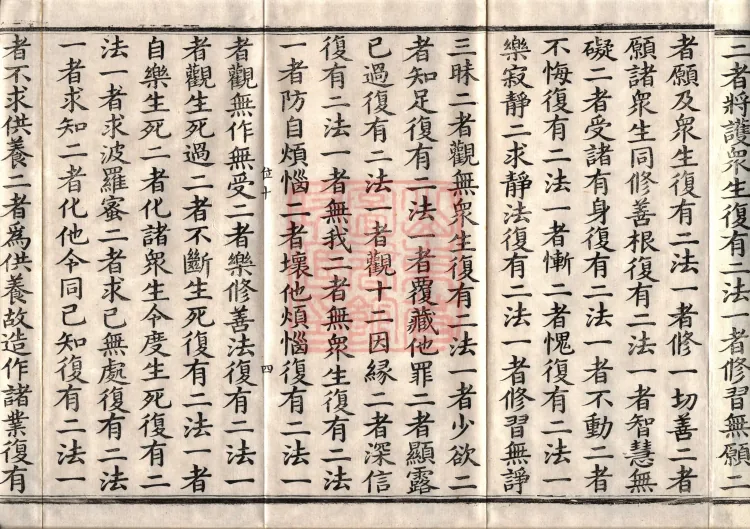 二者將護衆生復有二法一者修習無願二
者願及衆生復有二法一者修一切善二者
願諸衆生同修善根復有二法一者智慧無
礙二者受諸有身復有二法一者不動二者
不悔復有二法一者慚二者愧復有二法一
樂寂靜二求靜法復有二法一者修習無諍
三昧二者觀無衆生復有二法一者少欲二
者知足復有二法一者覆藏他罪二者顯露
已過復有二法一者觀十二因緣二者深信
復有二法一者無我二者無衆生復有二法
一者防自煩惱二者壞他煩惱復有二法一
位十 四
者觀無作無受二者樂修善法復有二法一
者觀生死過二者不斷生死復有二法一者
自樂生死二者化諸衆生令度生死復有二
法一者求波羅蜜二者求已無處復有二法
一者求知二者化他令同已知復有二法一
者不求供養二者爲供養故造作諸業復有